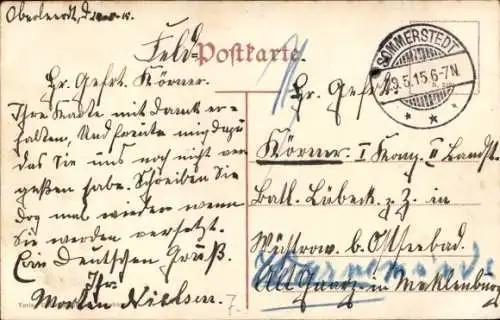 Oberleerdt, d
Feld-
Postkarte
SOMMERSTEDT
9.5.15.6-7N
Hr. Gefrt. Körner.
Ihre Karte mit Dank er-
halten, Und freute mig dazu
das Sie uns noch nicht ver
geßen habe. Schreiben Sie
dog mal wieder wenn
Sie werden versetzt.
Ein Deutschen Gruß.
Ihr
Morten Nielsen.
Hr. Gefrt.
Körner I Komp. II Landst.
Batl. Lübeck. z. Z. in
Wustrow b. Ostseebad.
Alt Gaarz in Mecklenburg